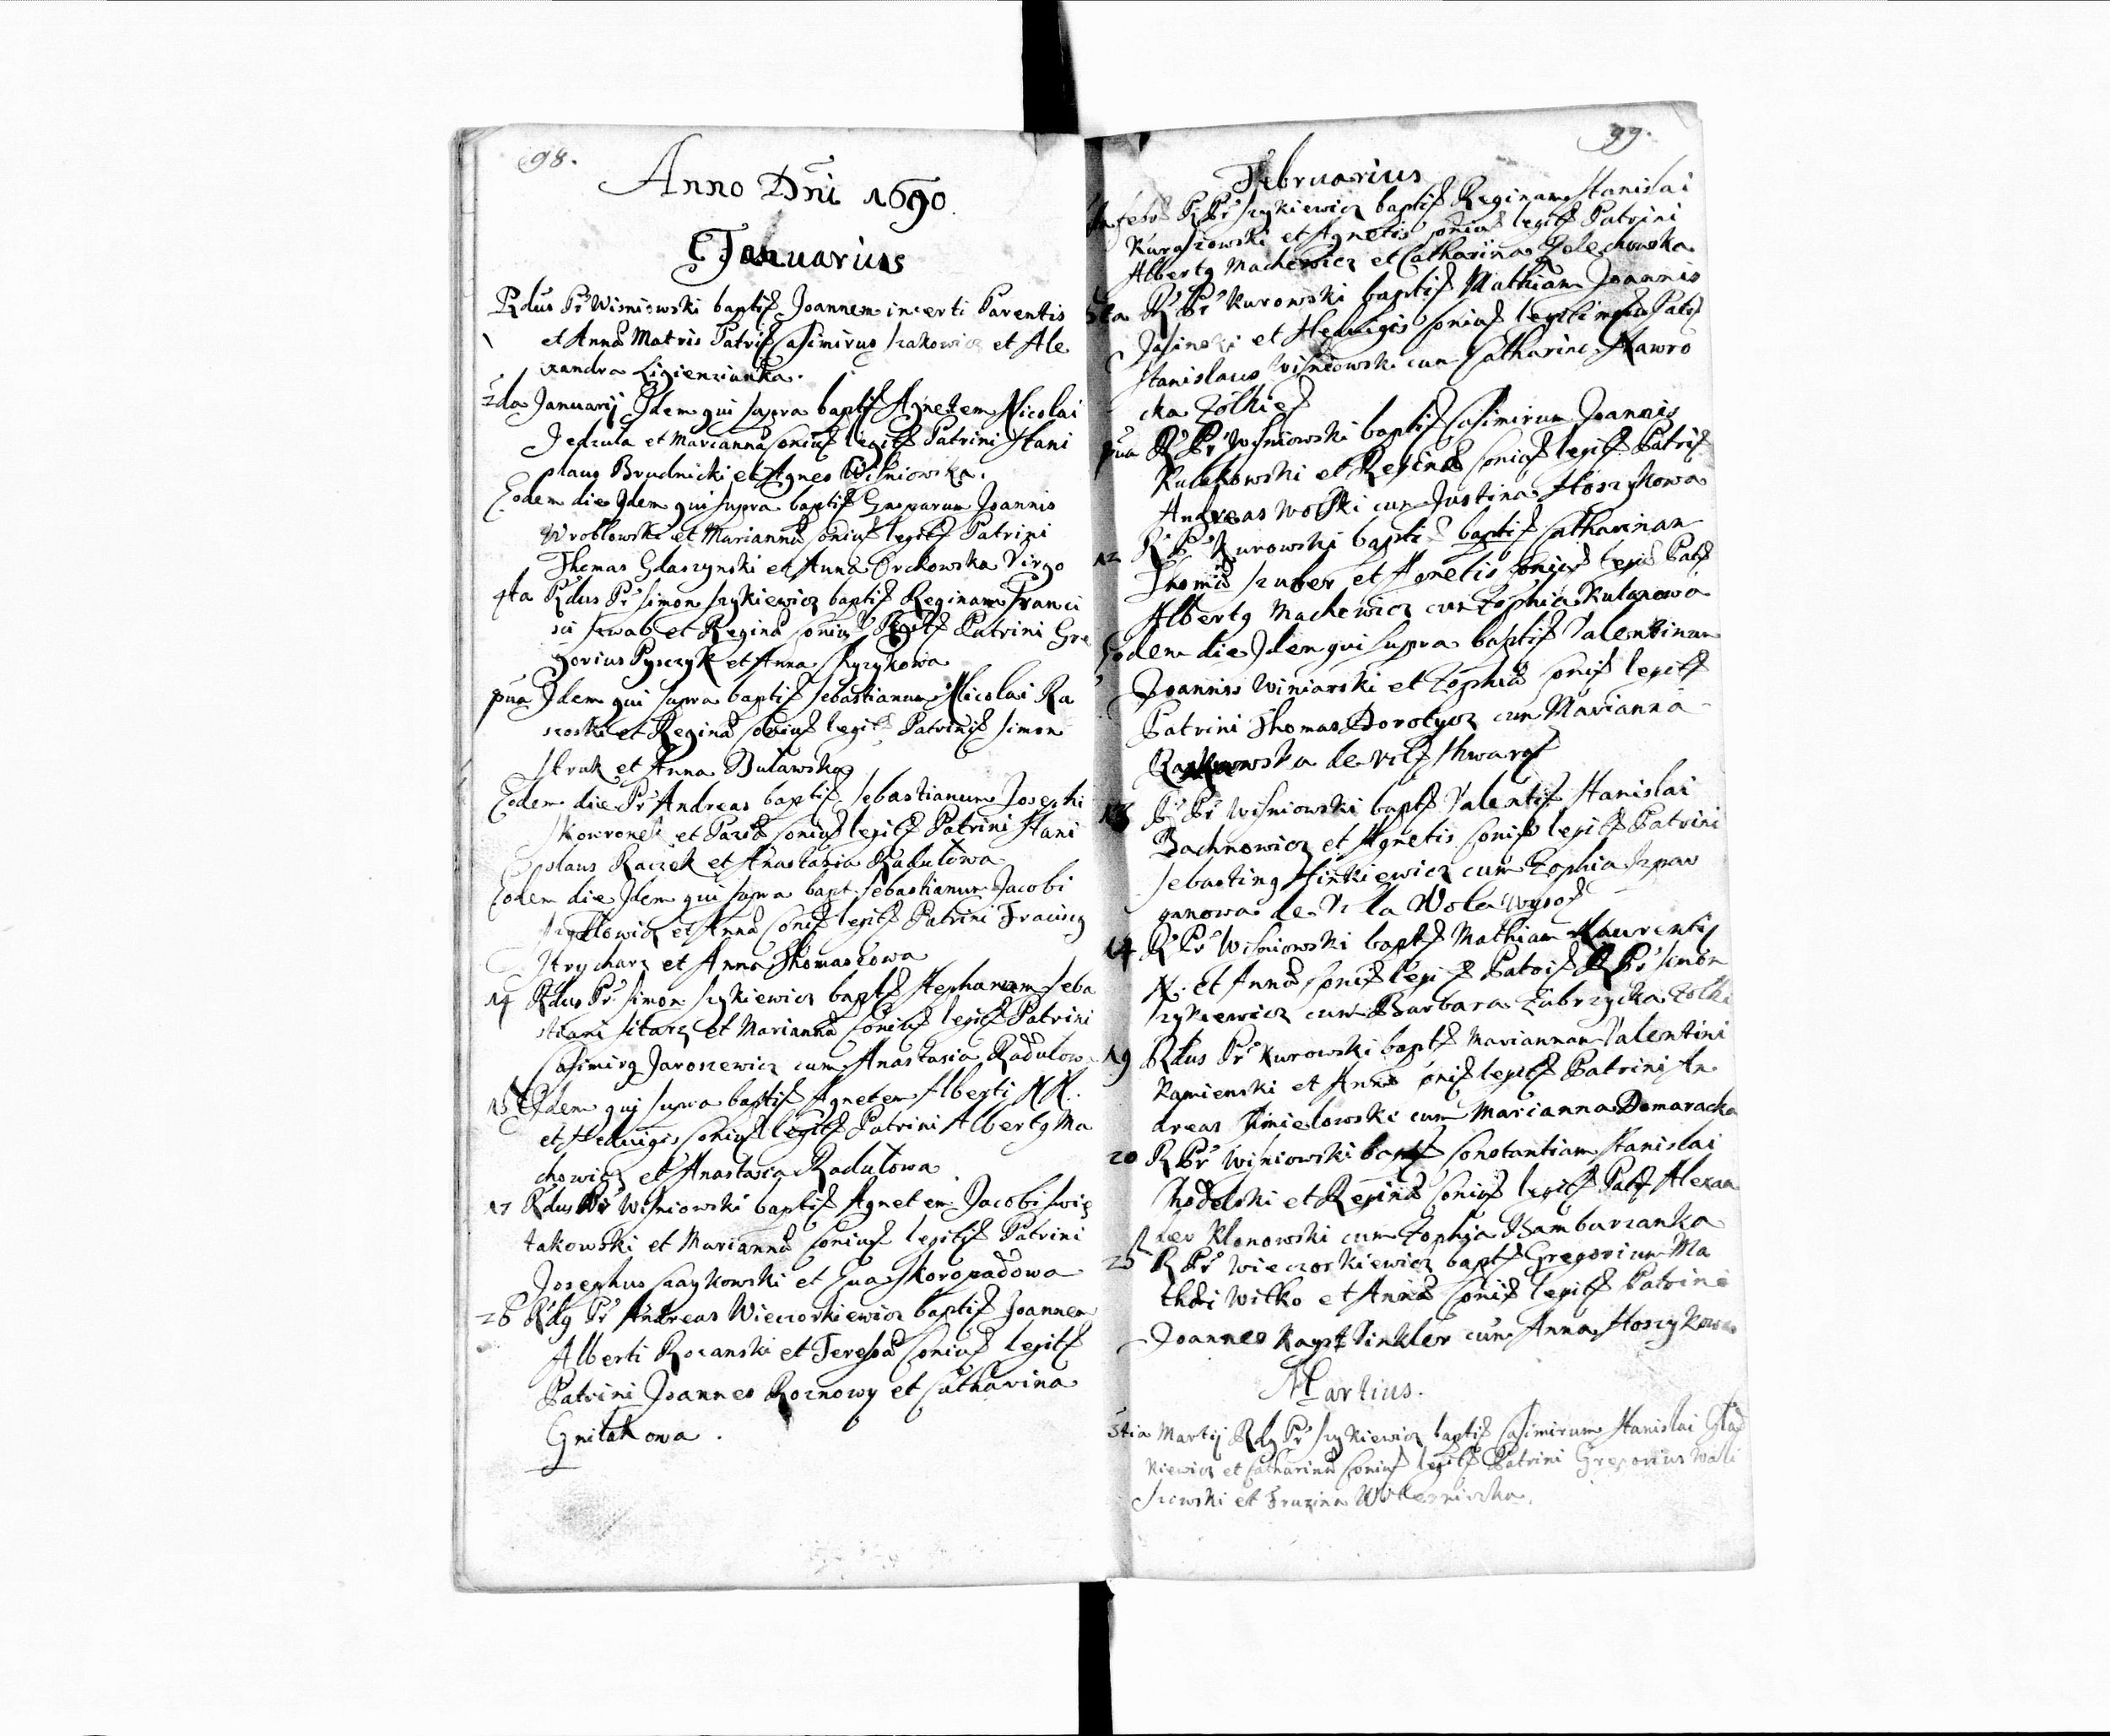 98.
Anno Dni 1690.
Januarius
Rdus Pr Wisniowski baptis Joannem incerti Parentis
et Anna Matris Patrif Casimirus Szakowicz et Ale
xandra Ligienzianka.
2da Januarij Idem qui supra baptif Agnetem Nicolai
Jedzula et Marianna Coniuf legitf Patrini Stani
slaus Brudnicki et Agnes Wisniowska.
Eodem die Idem qui supra baptif Gasparum Joannis
Wroblowski et Marianna Coniuf legitf Patrini
Thomas Gdaszynski et Anna Orchowska Virgo
4ta Rdus Pr Simon Szykiewicz baptif Reginam Franci
sci Szwab et Regina Coniuf Legitf Patrini Gre
gorius Pysczyk et Anna Skyzykowa
pua Idem qui supra baptif Sebastianum Nicolai Ra
szoski et Regina Coniuf legitf Patrinif Simon
Struk et Anna Bulawska
Eodem die Pr Andreas baptif Sebastianum Josephi
Skowronek et Coniuf legitf Patrini Stani
slaus Raczek et Anastazia Radulowa
Eodem die Idem qui supra bapt Sebastianum Jacobi
et Anna Conif legitf Patrini
Strycharz et Anna Thomaszowa
14 Rdus Pr Simon Szykiewicz baptf Stephanum Seba
stiani Sitarz et Marianna Coniuf legitf Patrini
Casimirg Jaroszewicz cum Anastasia Radulow
15 Idem qui supra baptif Agnetem Alberti NN.
et Hedwigis Coniuf legitf Patrini Albertg Ma
chowicz et Anastasia Radulowa
17 Rdus Pr Wisniowski baptif Agnetem Jacobi Swię
takowski et Marianna Coniuf legitf Patrini
Josephus Czaykowski et Eua Skoropadowa
26 Rdg Pr Andreas Wieczorkiewicz baptif Joannem
Alberti Rozanski et Teresa Coniuf legitf
Patrini Joannes Roznowy et Catharina
Gnitakowa.
99.
Februarius
R Pr Szykiewicz baptif Reginam Stanislai
Kurasiowski et Agnetis Coniuf legitf Patrini
Albertg Machewicz et Catharina Golechowska
5ta R Pr Kurowski baptif Mathiam Joannis
Jasinski et Hedwigis Coniuf legitimoru Patrf
Stanislaus Wisniowski cum Catharina Nawro
cka Zolkief
pua R Pr Wisniowski baptif Casimirum Joannis
Kulikowski et Regina Coniuf legitf Patrif
Andreas Wolski cum Justina Hoszykowa
12 R Pr Kurowski baptif baptif Catharinam
Thoma Szuber et Agnetis Coniuf legit Patf
Albertg Machewicz cum Zophia Kulanowa
Eodem die Idem qui supra baptif Valentinum
Joannis Winiarski et Zophia Conif legitf
Patrini Thomas Dorotycz cum Marianna
de Vilf Skwarof
R Pr Wisniowski baptf Valentif Stanislai
Bachnowicz et Agnetis Conif legitf Patrini
Sebasting Sinkiewicz cum Zophia Szpaw
ganowa de Vi la Wola Wysof
14 R Pr Wisniowski baptf Mathiam Laurentij
N. et Anna Conif legitf Patrif R Pr Simon
Szykiewicz cum Barbara Zubrzycka Zolki
19 Rdus Pr Kurowski baptf Mariannam Valentini
Kamienski et Anna Conif legitf Patrini An
dreas Kmielowski cum Marianna Domaracka
20 R Pr Wisniowski baptf Constantiam Stanislai
Chodelski et Regina Coniuf legitf Patf Alexan
der Klonowski cum Zophia Bamburzanka
25 R Pr Wieczorkiewicz baptf Gregorium Ma
thei Witko et Anna Conif legitf Patrini
Joannes Kayst Sinkler cum Anna Hoszykowa
Martius.
3tia Martij Rdg Pr Szykiewicz baptif Casimirum Stanislai Glad
kiewicz et Catharina Coniuf legitf Patrini Gregorius Wali
szewski et Fruzina